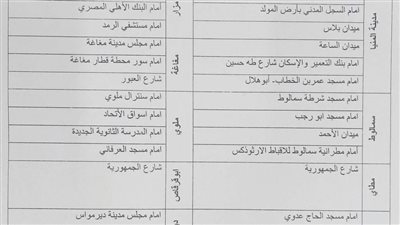 مدينة المنيا
امام السجل المدني بأرض المولد
ميدان بلاس
ميدان الساعة
امام بنك التعمير والإسكان شارع طه حسين
امام مسجد عمربن الخطاب- أبوهلال
سمالوط
امام مسجد شرطة سمالوط
امام مسجد ابو رجب
ميدان الأحمد
أمام مطرانية سمالوط للاقباط الارثوذكس
مطاي
شارع الجمهورية
امام مسجد الحاج عدوي
مزار
امام البنك الأهلي المصري
امام مستشفي الرمد
مغاغة
امام مجلس مدينة مغاغة
امام سور محطة قطار مغاغة
شارع العبور
ملوي
امام سنترال ملوي
امام اسواق الأتحاد
امام المدرسة الثانوية الجديدة
امام مسجد العرفاني
ابوقرقاص
شارع الجمهورية
امام مجلس مدينة ديرمواس